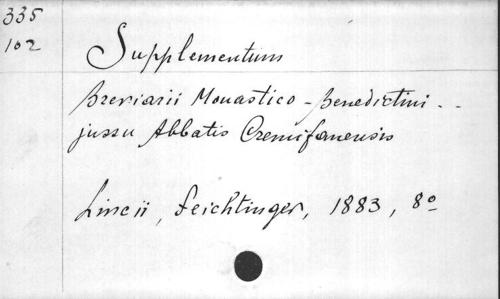 335
102
Supplementum
Breviarii Monastico - Benedictini . .
jussu Abbatis Cremifanensis
Lincii, Feichtinger, 1883, 8º